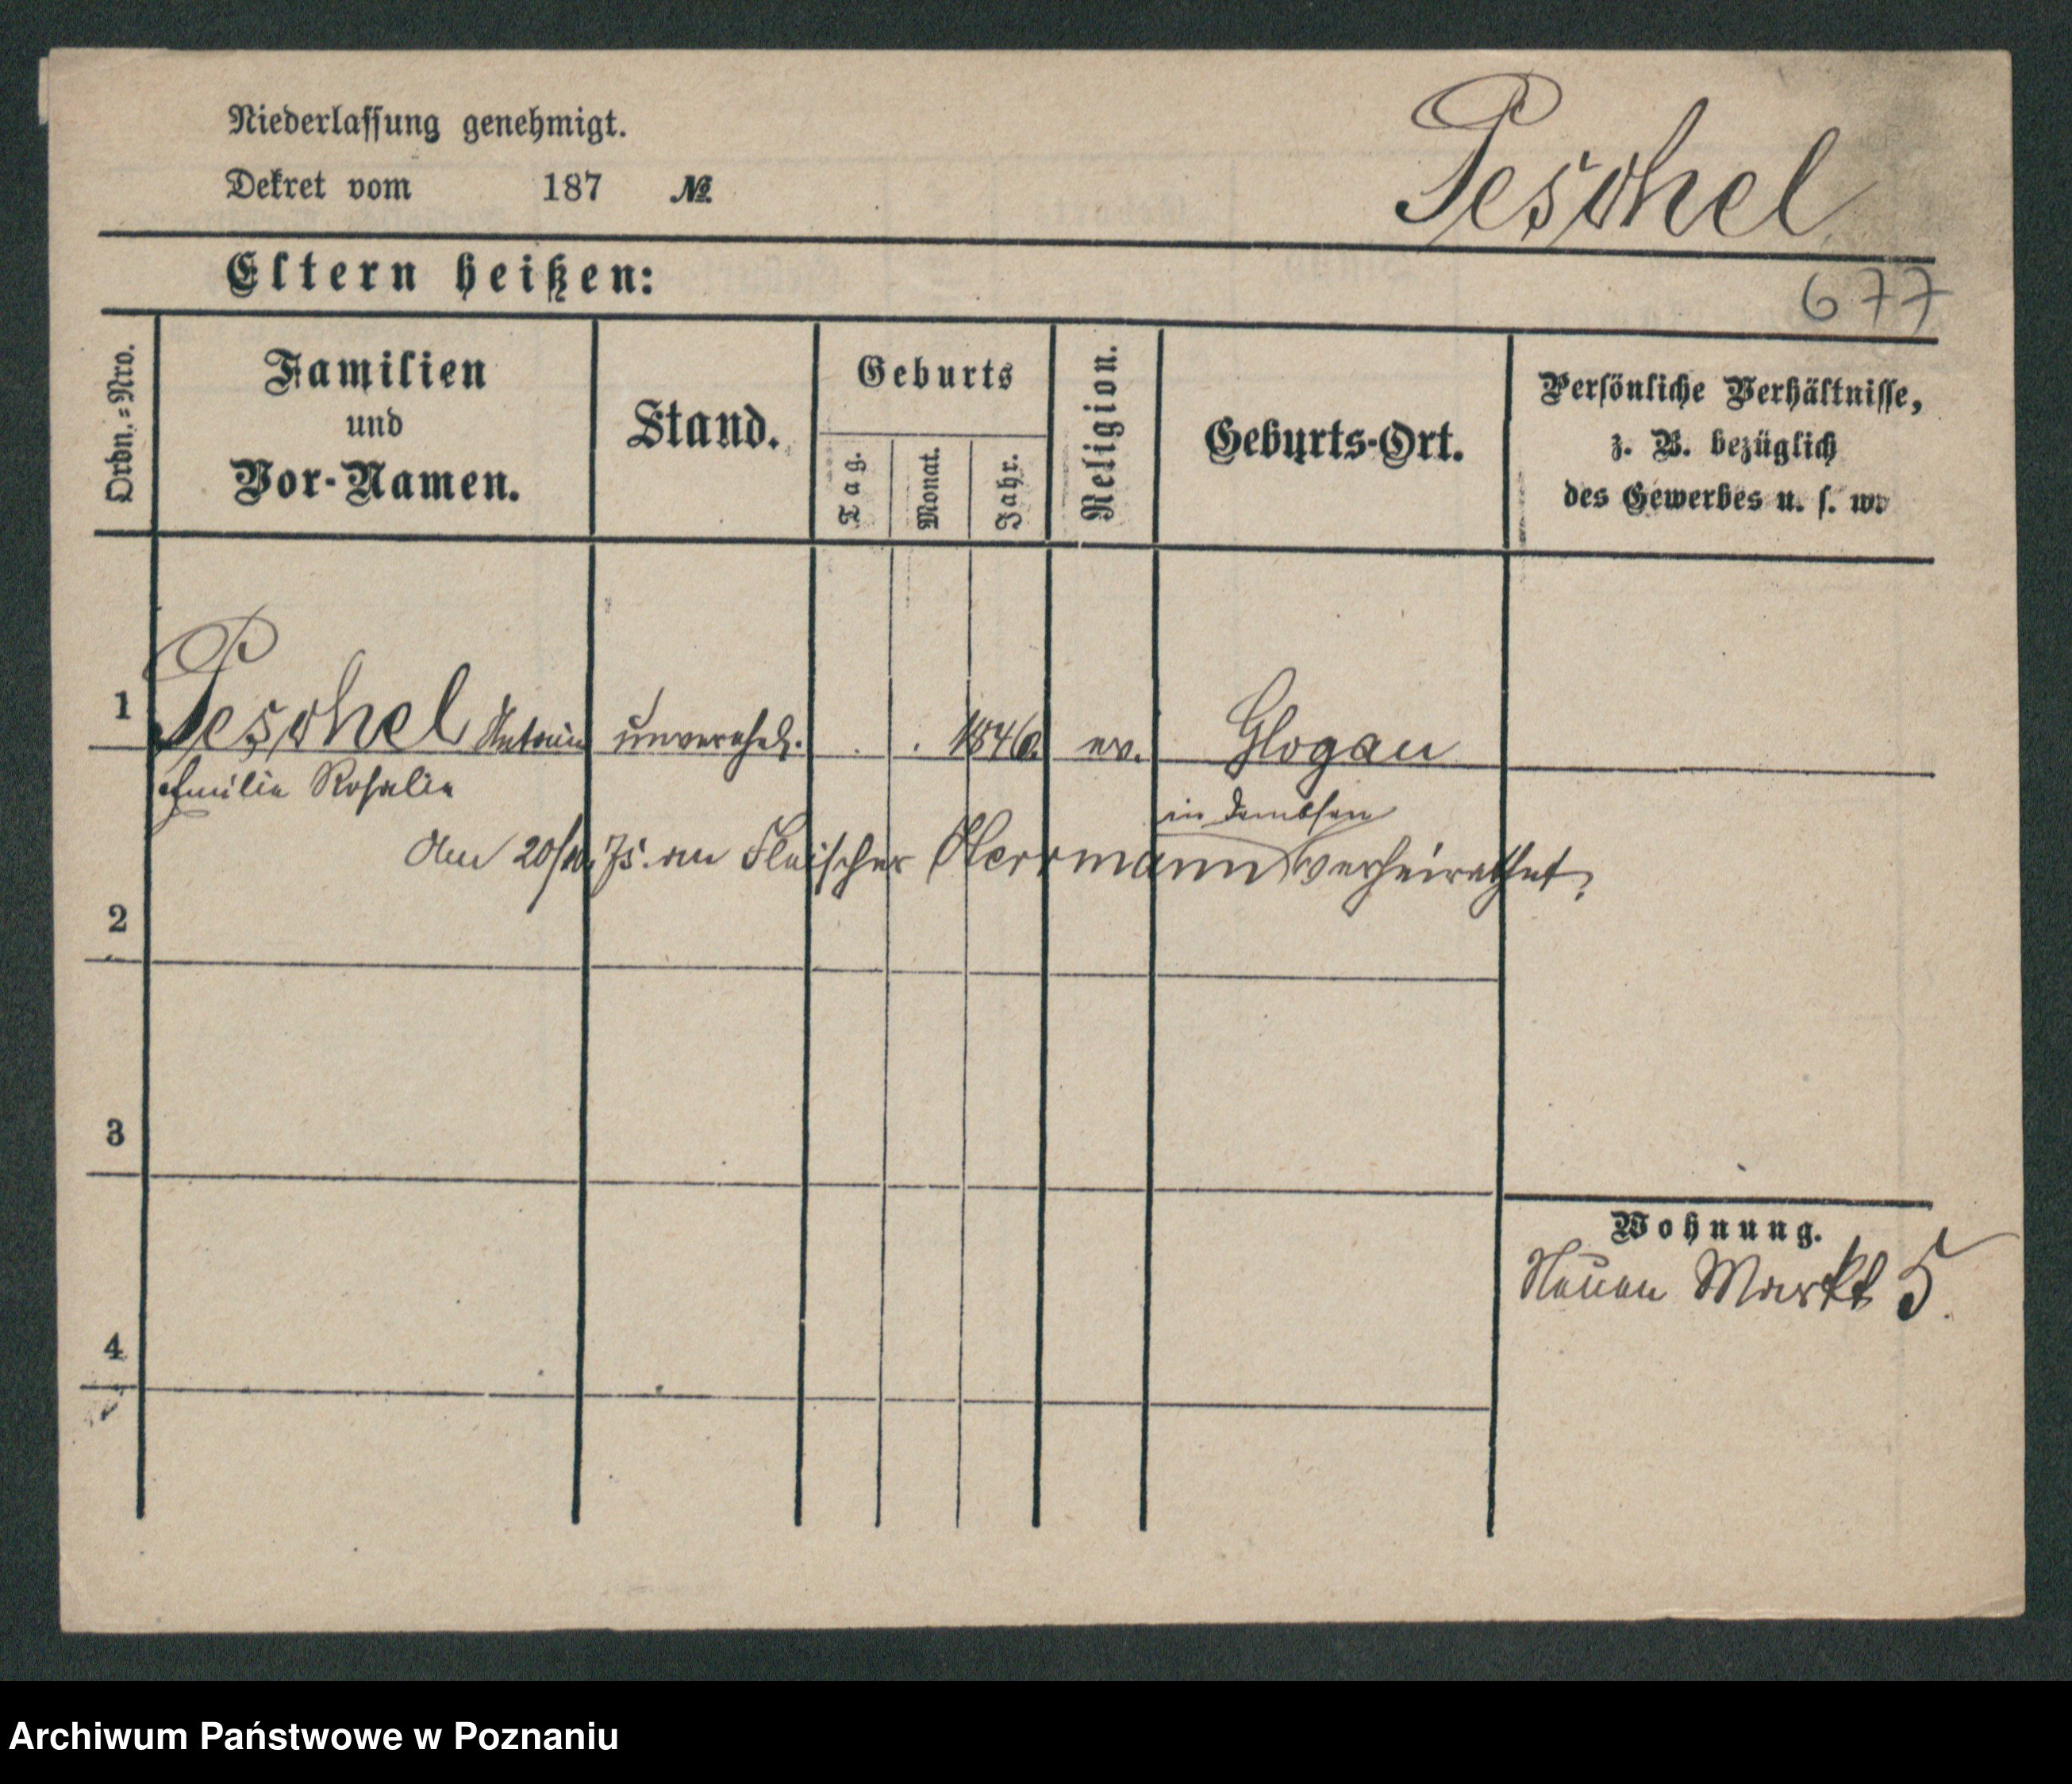 Niederlassung genehmigt.
Dekret vom 187 №
Peschel
Eltern heißen:
677
Ordn.=Nro.
Familien und Vor-Namen.
Stand.
Geburts
Tag.
Monat.
Jahr.
Religion.
Geburts-Ort.
Persönliche Verhältnisse,
z. B. bezüglich
des Gewerbes u. s. w.
1 Peschel unverehel. . . 1846. ev. Glogau
Emilie Rosalie
in Dembsen
den 20/10. 75. an Fleischer Herrmann verheirathet.
2
3
Wohnung.
Neuen Markt 5.
4
Archiwum Państwowe w Poznaniu